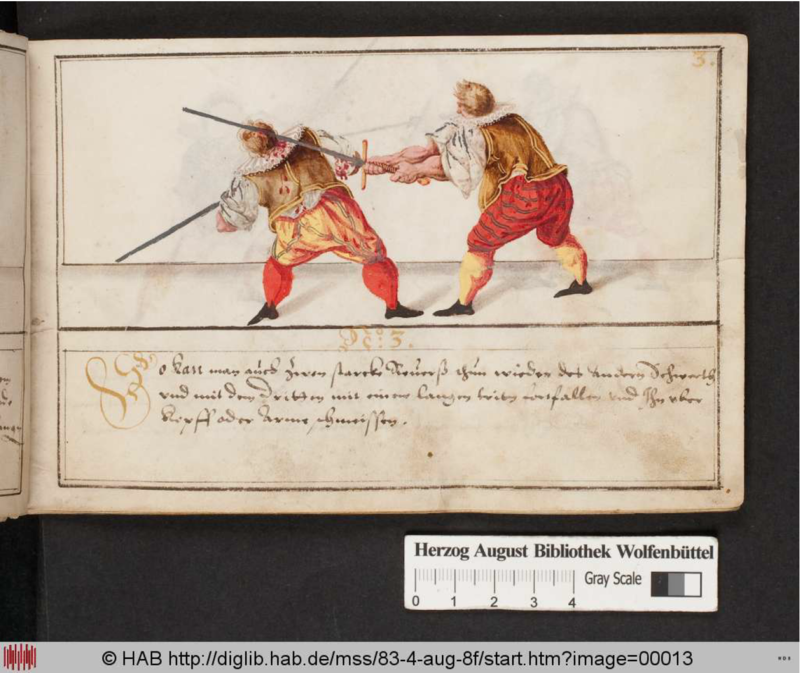 3.
No: 3.
So kan man auch zwen starcke Reverß thun wieder des andern Schwerth
vnd mit dem Dritten mit einem langen tritt fortfallen vnd Ihn vber
Kopff oder Arme schmeissen.
Herzog August Bibliothek Wolfenbüttel
Gray Scale
0 1 2 3 4
© HAB http://diglib.hab.de/mss/83-4-aug-8f/start.htm?image=00013